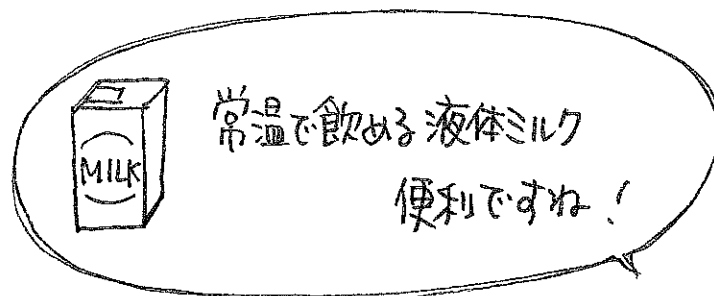 MILK
常温で飲める液体ミルク
便利ですね!